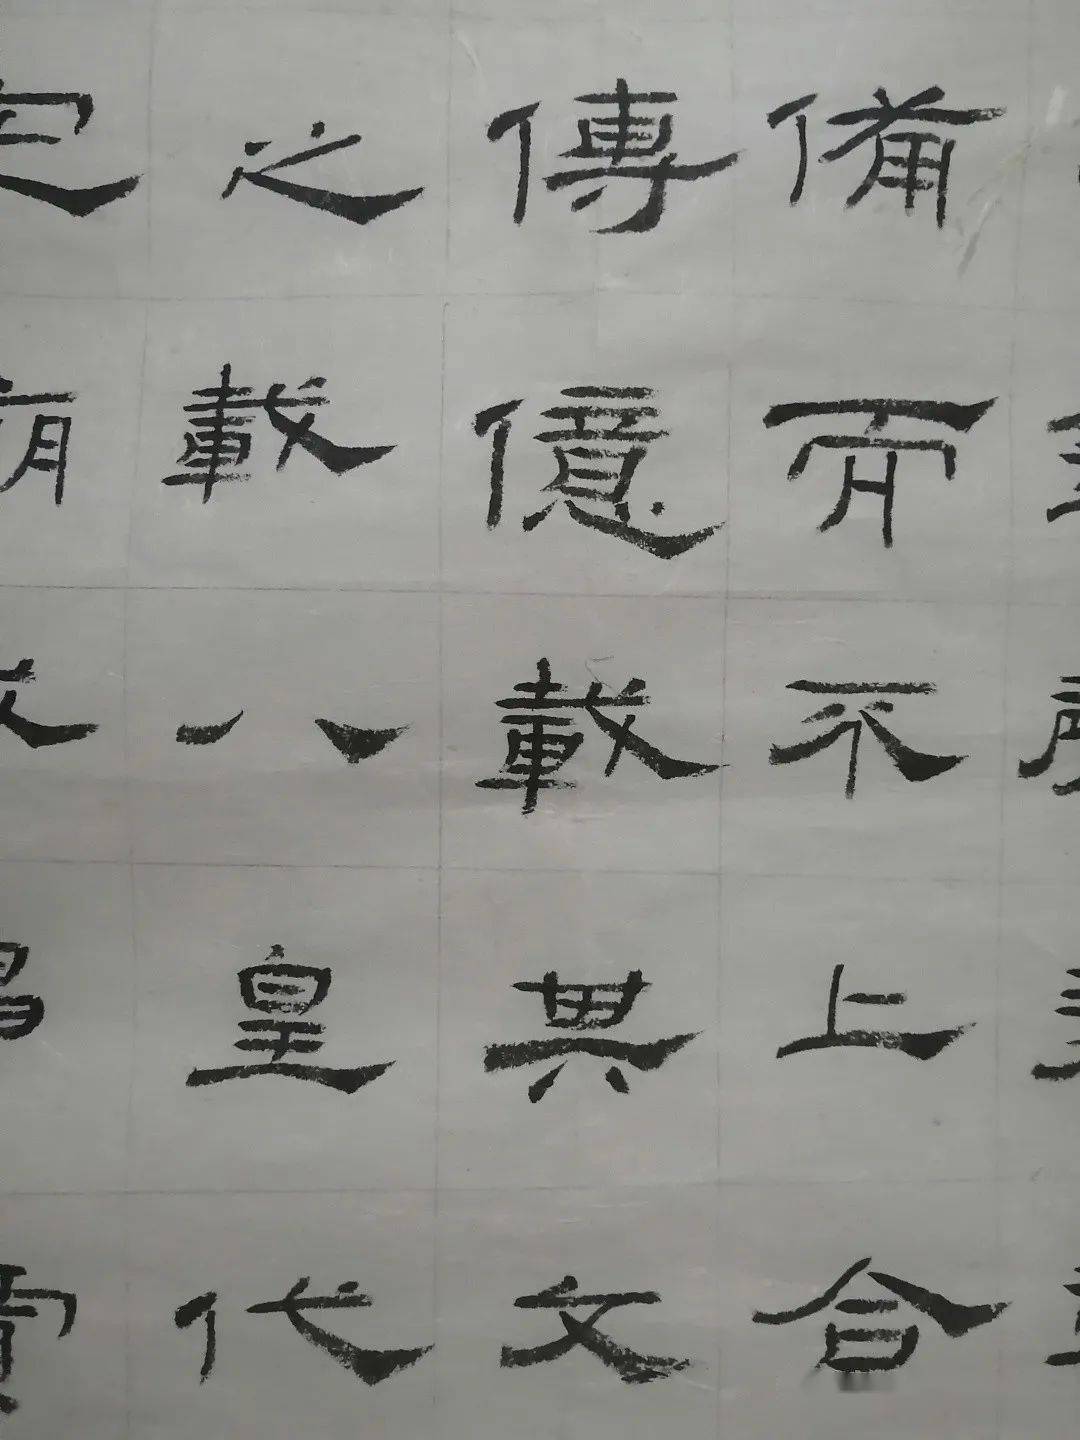 備而不上合
傳億載共文
之載八皇代